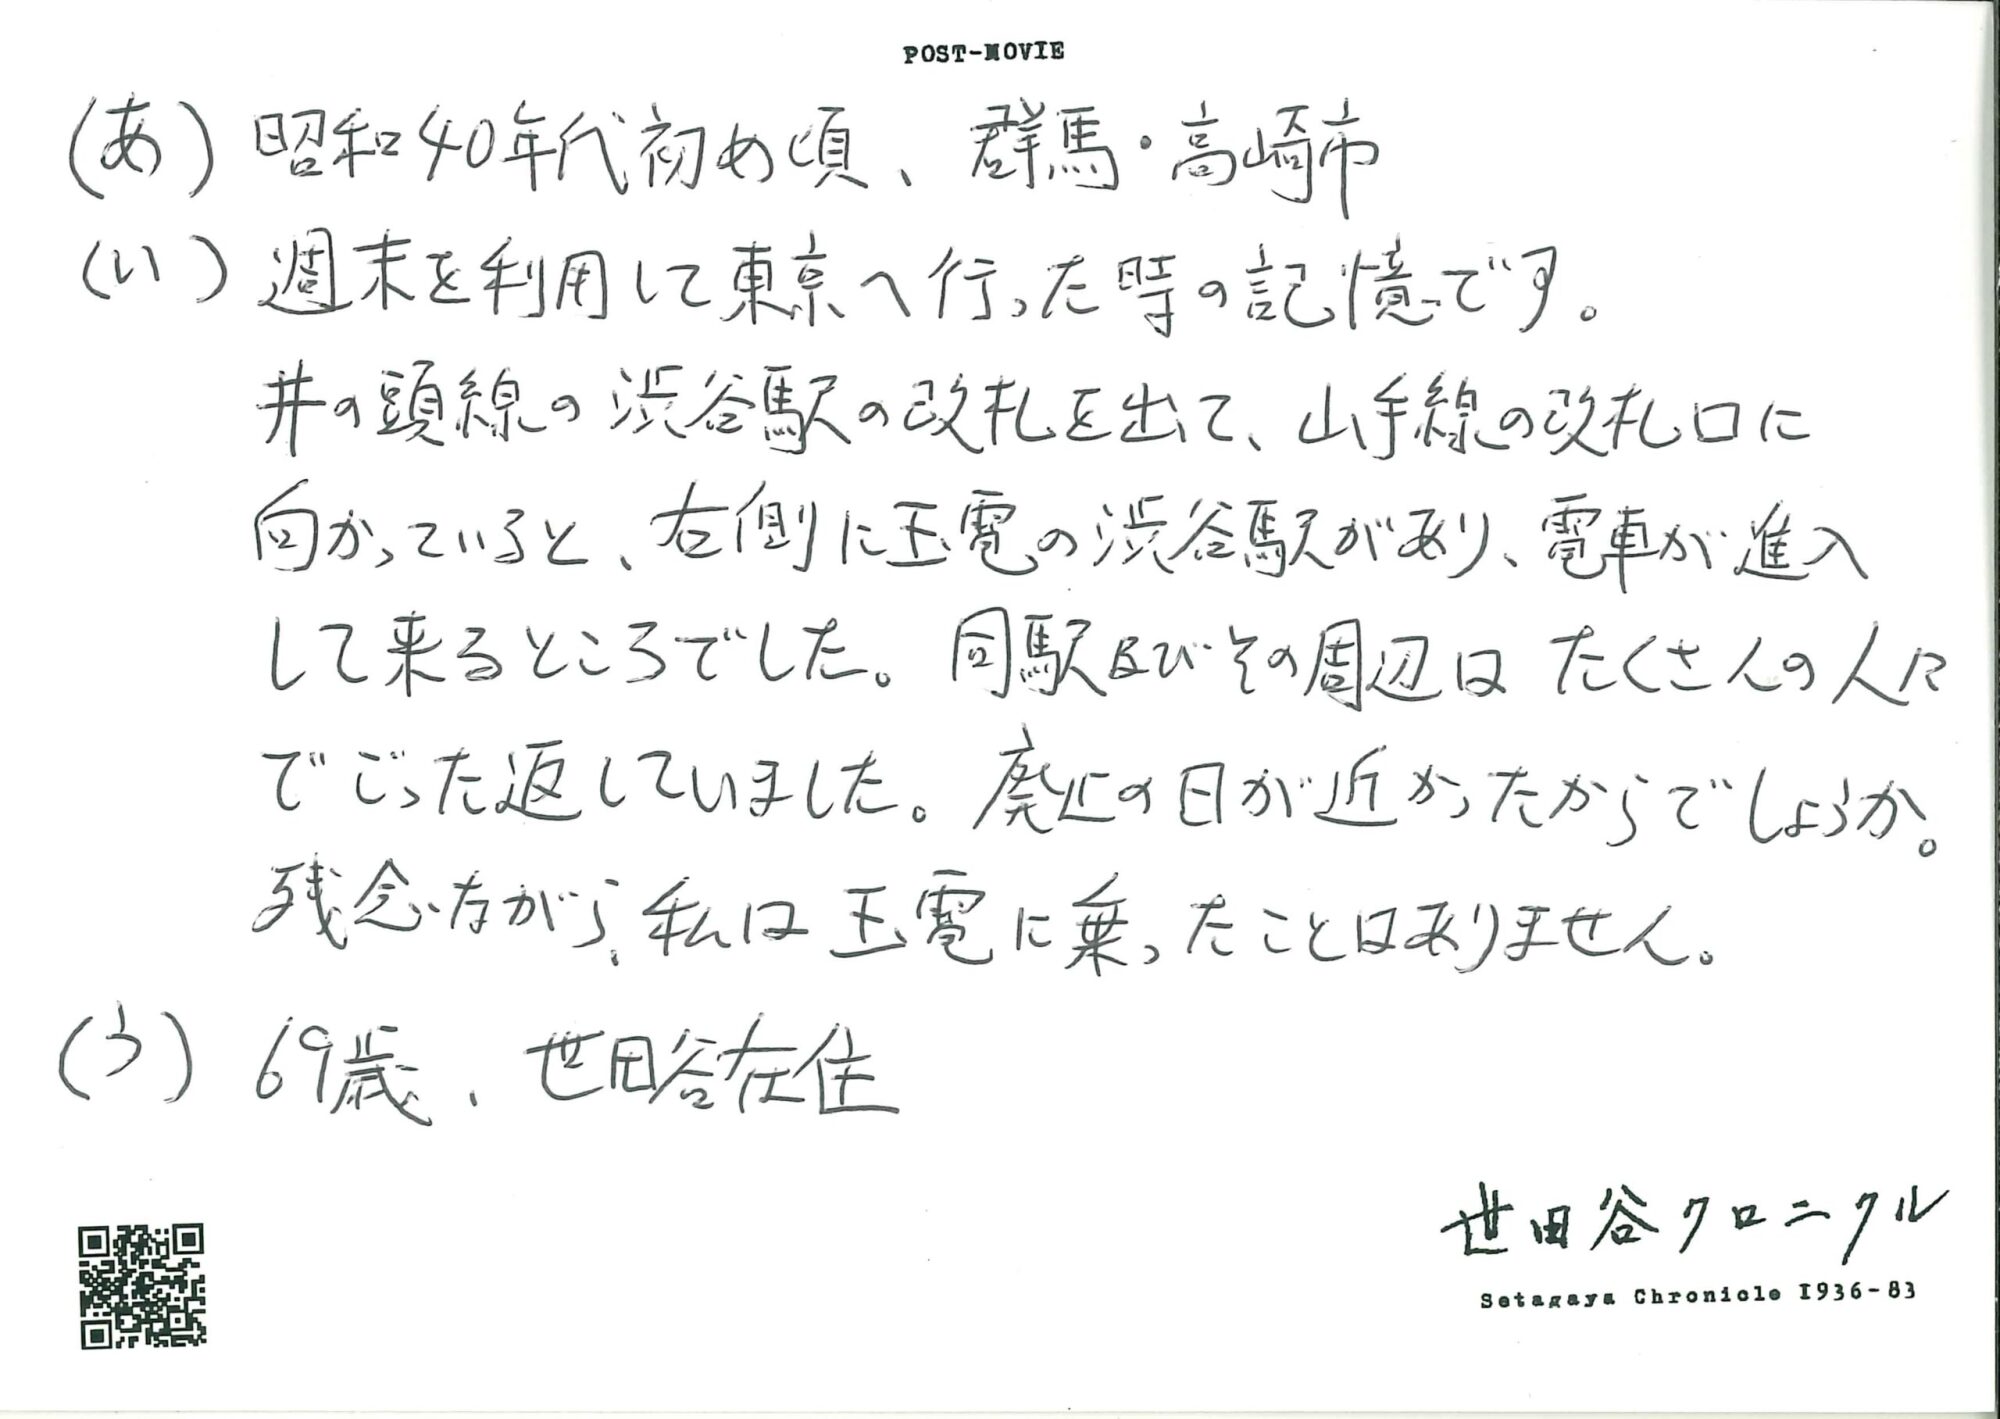 POST-MOVIE
(あ) 昭和40年代初め頃、群馬・高崎市
(い) 週末を利用して東京へ行った時の記憶です。
井の頭線の渋谷駅の改札を出て、山手線の改札口に
向かっていると、右側に玉電の渋谷駅があり、電車が進入
して来るところでした。同駅及びその周辺はたくさんの人々
でごった返していました。廃止の日が近かったからでしょうか。
残念ながら、私は玉電に乗ったことはありません。
(う) 69歳、世田谷在住
世田谷クロニクル
Setagaya Chronicle 1936-83